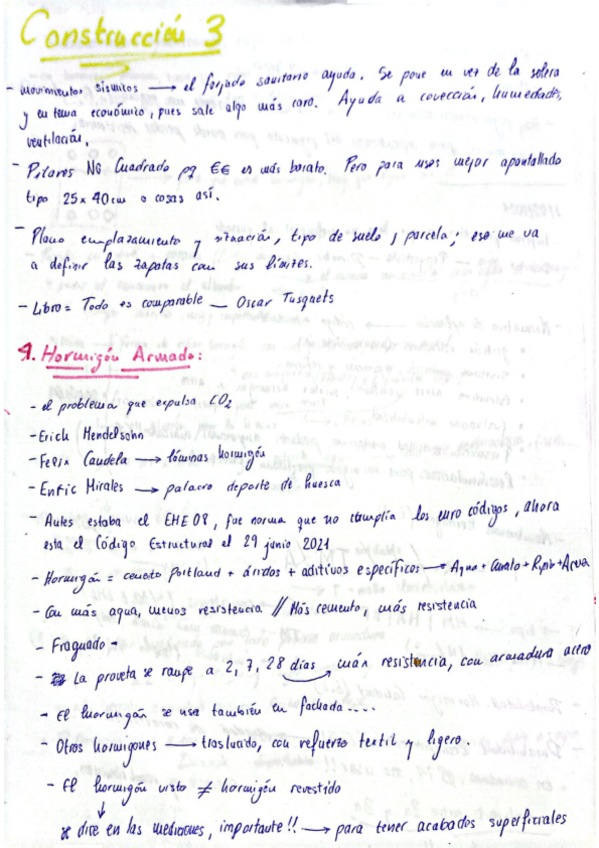 Construcción 3
- movimientos sísmicos → el forjado sanitario ayuda. Se pone en vez de la solera
y en tema económico, pues sale algo más caro. Ayuda a covección, humedades,
ventilación.
- Pilares NO Cuadrado pq €€ es más barato. Pero para usos mejor apantallado
tipo 25x40cm o cosas así.
- Plano emplazamiento y situación, tipo de suelo, parcela; eso me va
a definir las zapatas con sus límites.
- Libro = Todo es comparable — Oscar Tusquets
1. Hormigón Armado:
- el problema que expulsa CO2
- Erich Mendelsohn
- Felix Candela → láminas hormigón
- Enric Mirales → palacio deporte de huesca
- Antes estaba el EHE08, fue norma que no cumplía los euro códigos, ahora
está el Código Estructural el 29 junio 2021
- Hormigón = cemento portland + áridos + aditivos específicos → Agua + + + Arena
- Con más agua, menos resistencia // Más cemento, más resistencia
- Fraguado -
- La proveta se rompe a 2, 7, 28 días resistencia, con armadura acero
- El hormigón se usa también en fachada....
- Otros hormigones → traslucido, con refuerzo textil y ligero.
- El hormigón visto ≠ hormigón revestido
se dice en las mediciones, importante!! → para tener acabados superficiales